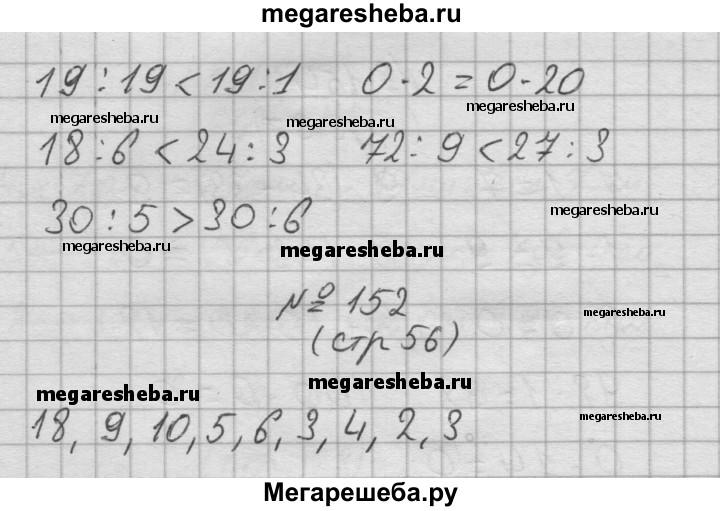 megaresheba.ru
19 : 19 < 19 : 1    0 · 2 = 0 · 20
megaresheba.ru megaresheba.ru megaresheba.ru
18 : 6 < 24 : 3    72 : 9 < 27 : 3
30 : 5 > 30 : 6
megaresheba.ru megaresheba.ru megaresheba.ru
№ 152
megaresheba.ru
(стр 56)
megaresheba.ru megaresheba.ru
18, 9, 10, 5, 6, 3, 4, 2, 3
megaresheba.ru
Мегарешеба.ру